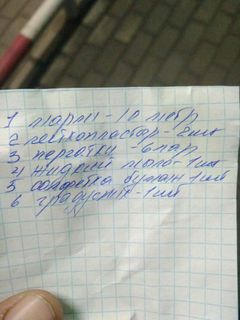 1 марли - 10 метр
2 лейкопластор - 2 шт
3 перчатки - 6 пар
4 жидкий мыло - 1 шт
5 салфетка бумаж 1 шт
6 градусник - 1 шт